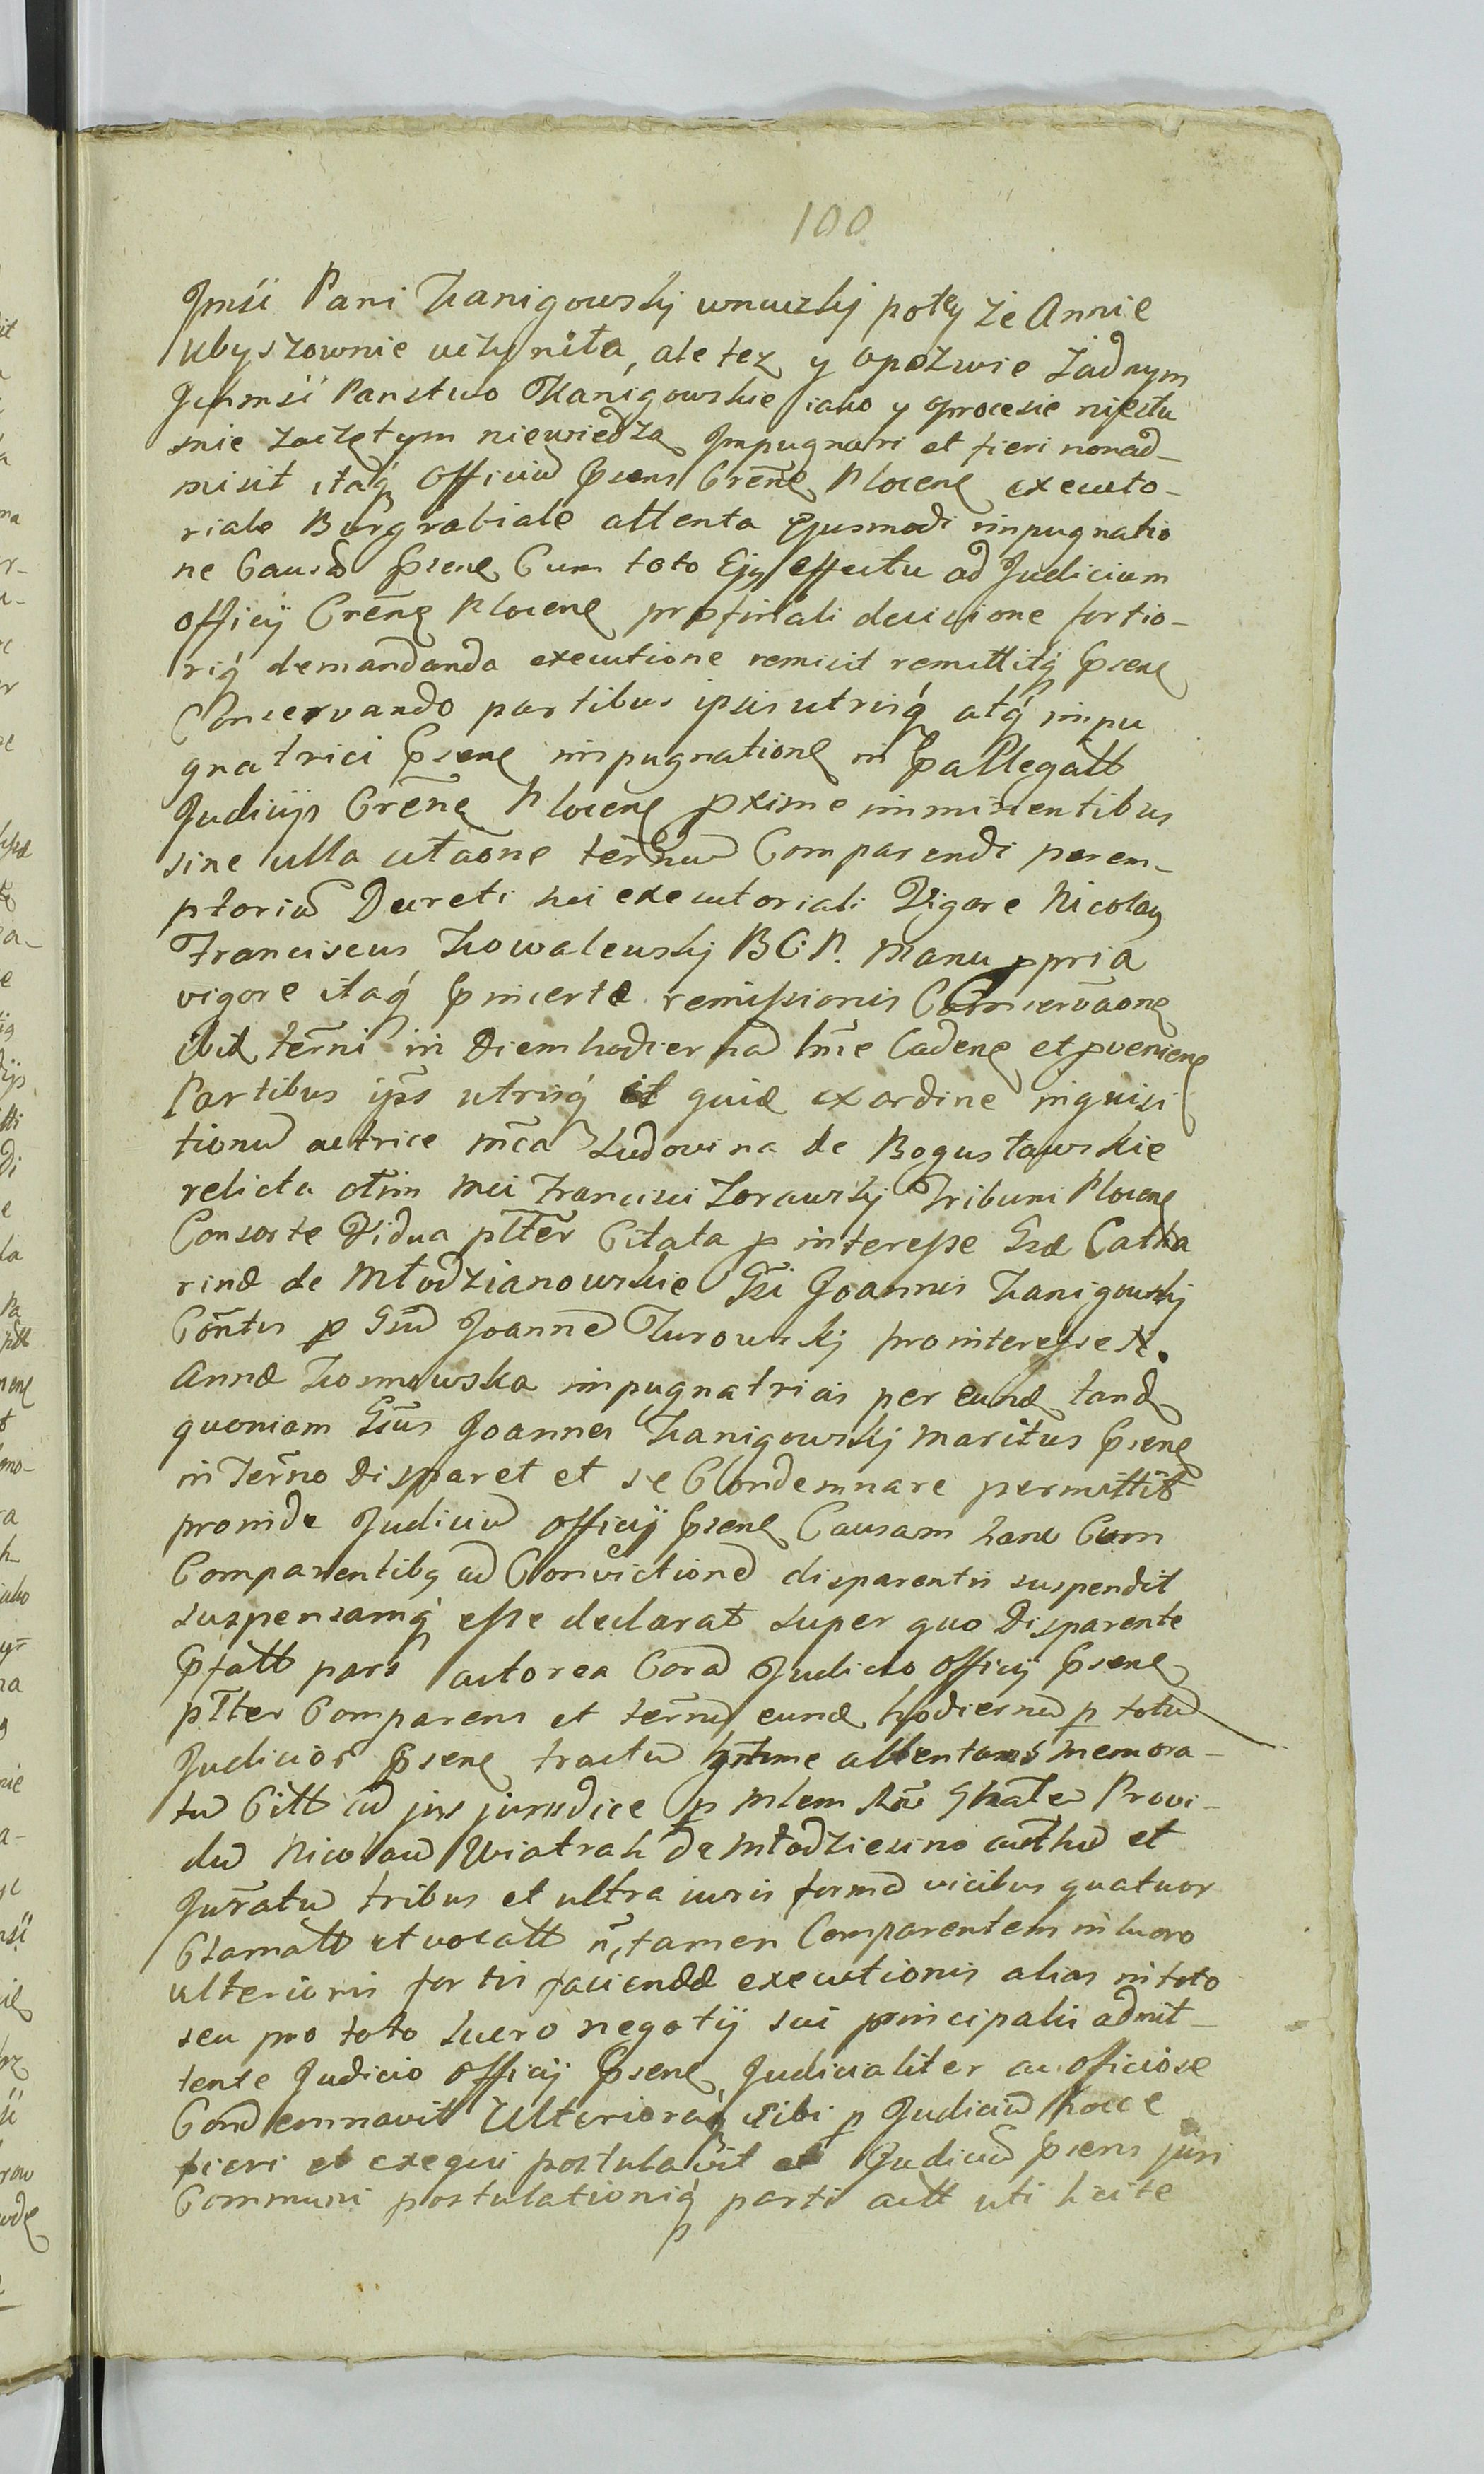 100
Jmśći Pani Kanigowsky wnuczky potey że Annie
Ubyszownie uczyniła, ale tez y opozwie żadnym
Ichmsći Panstwo Kanigowskie iako y oprocesie
snie zaczętym niewiedzą Impugnari et fieri nonad-
misit itaq́ Officiu Psens Crēne Plocene executo-
riale Burgrabiale attenta Ejusmodi impugnatio
ne Causa Psene Cum toto Ejg effectu ad Judicium
officij Crēne Plocene pro finali decisione fortio-
riq́ demandanda executione remisit remittitq́ Psene
Conservando partibus ipsis utrisq́ atq́ impu
gnatrici Psene impugnatione in Pallegatt
Judicijs Crēne Plocene pxime imminentibus
sine ulla citaōne termu Comparendi perem-
ptoriu Decreti sui executoriali Vigore Nicolag
Franciscus Kowalewsky B C: P. Manu ppria
vigore itaq́ Pinserte remissionis Conservaōne
ibid term̄i in Diem hodierna Cadene et pveniene
Partibus ips̄ utrisq́ quid ex ordine inquisi
tionu actrice Mc̄a Ludovina de Bogusławskie
relicta olim Mci Francisci Zorawsky Tribuni Plocene
Consorte Vidua pltter Citata p interesse Gsd Catha
rind de Młodzianowskie Gsi Joannis Kanigowsky
Cōntis p Gsu Joanne Turowsky prointeresse N.
Annd Kosmowska impugnatricis per eund tand
quoniam Gsūs Joannes Kanigowsky maritus Psene
in Term̄o Disparet et se Condemnare permittit
proinde Judiciu officij Psene Causam hanc Cum
Comparentibg ad Convictione disparentis suspendit
suspensamq́ esse declarat super quo Disparente
Pfatt pars actorea Cora Judicio officij Psene
pltter Comparens et termu eund hodiernu p totu
Judicior Psene tractu attentans memora-
tu Citt ad jus jurisdice p Provi-
du Nicolau Wiatrak de Młodziesino et
Jurātu tribus et ultra iuris forma vicibus quatuor
Clamatt et vocatt n̄ tamen Comparentem in lucro
ulterioris fortis faciendd executionis alias in toto
seu pro toto lucro negotij sui principalis admit-
tente Judicio officij Psene Judicialiter ac officiose
Condemnavit Ulterioraq́ sibi p Judiciu hocce
fieri et exequi postulavit et Judiciu Psens juri
Communi postulationiq́ partis actt uti licite